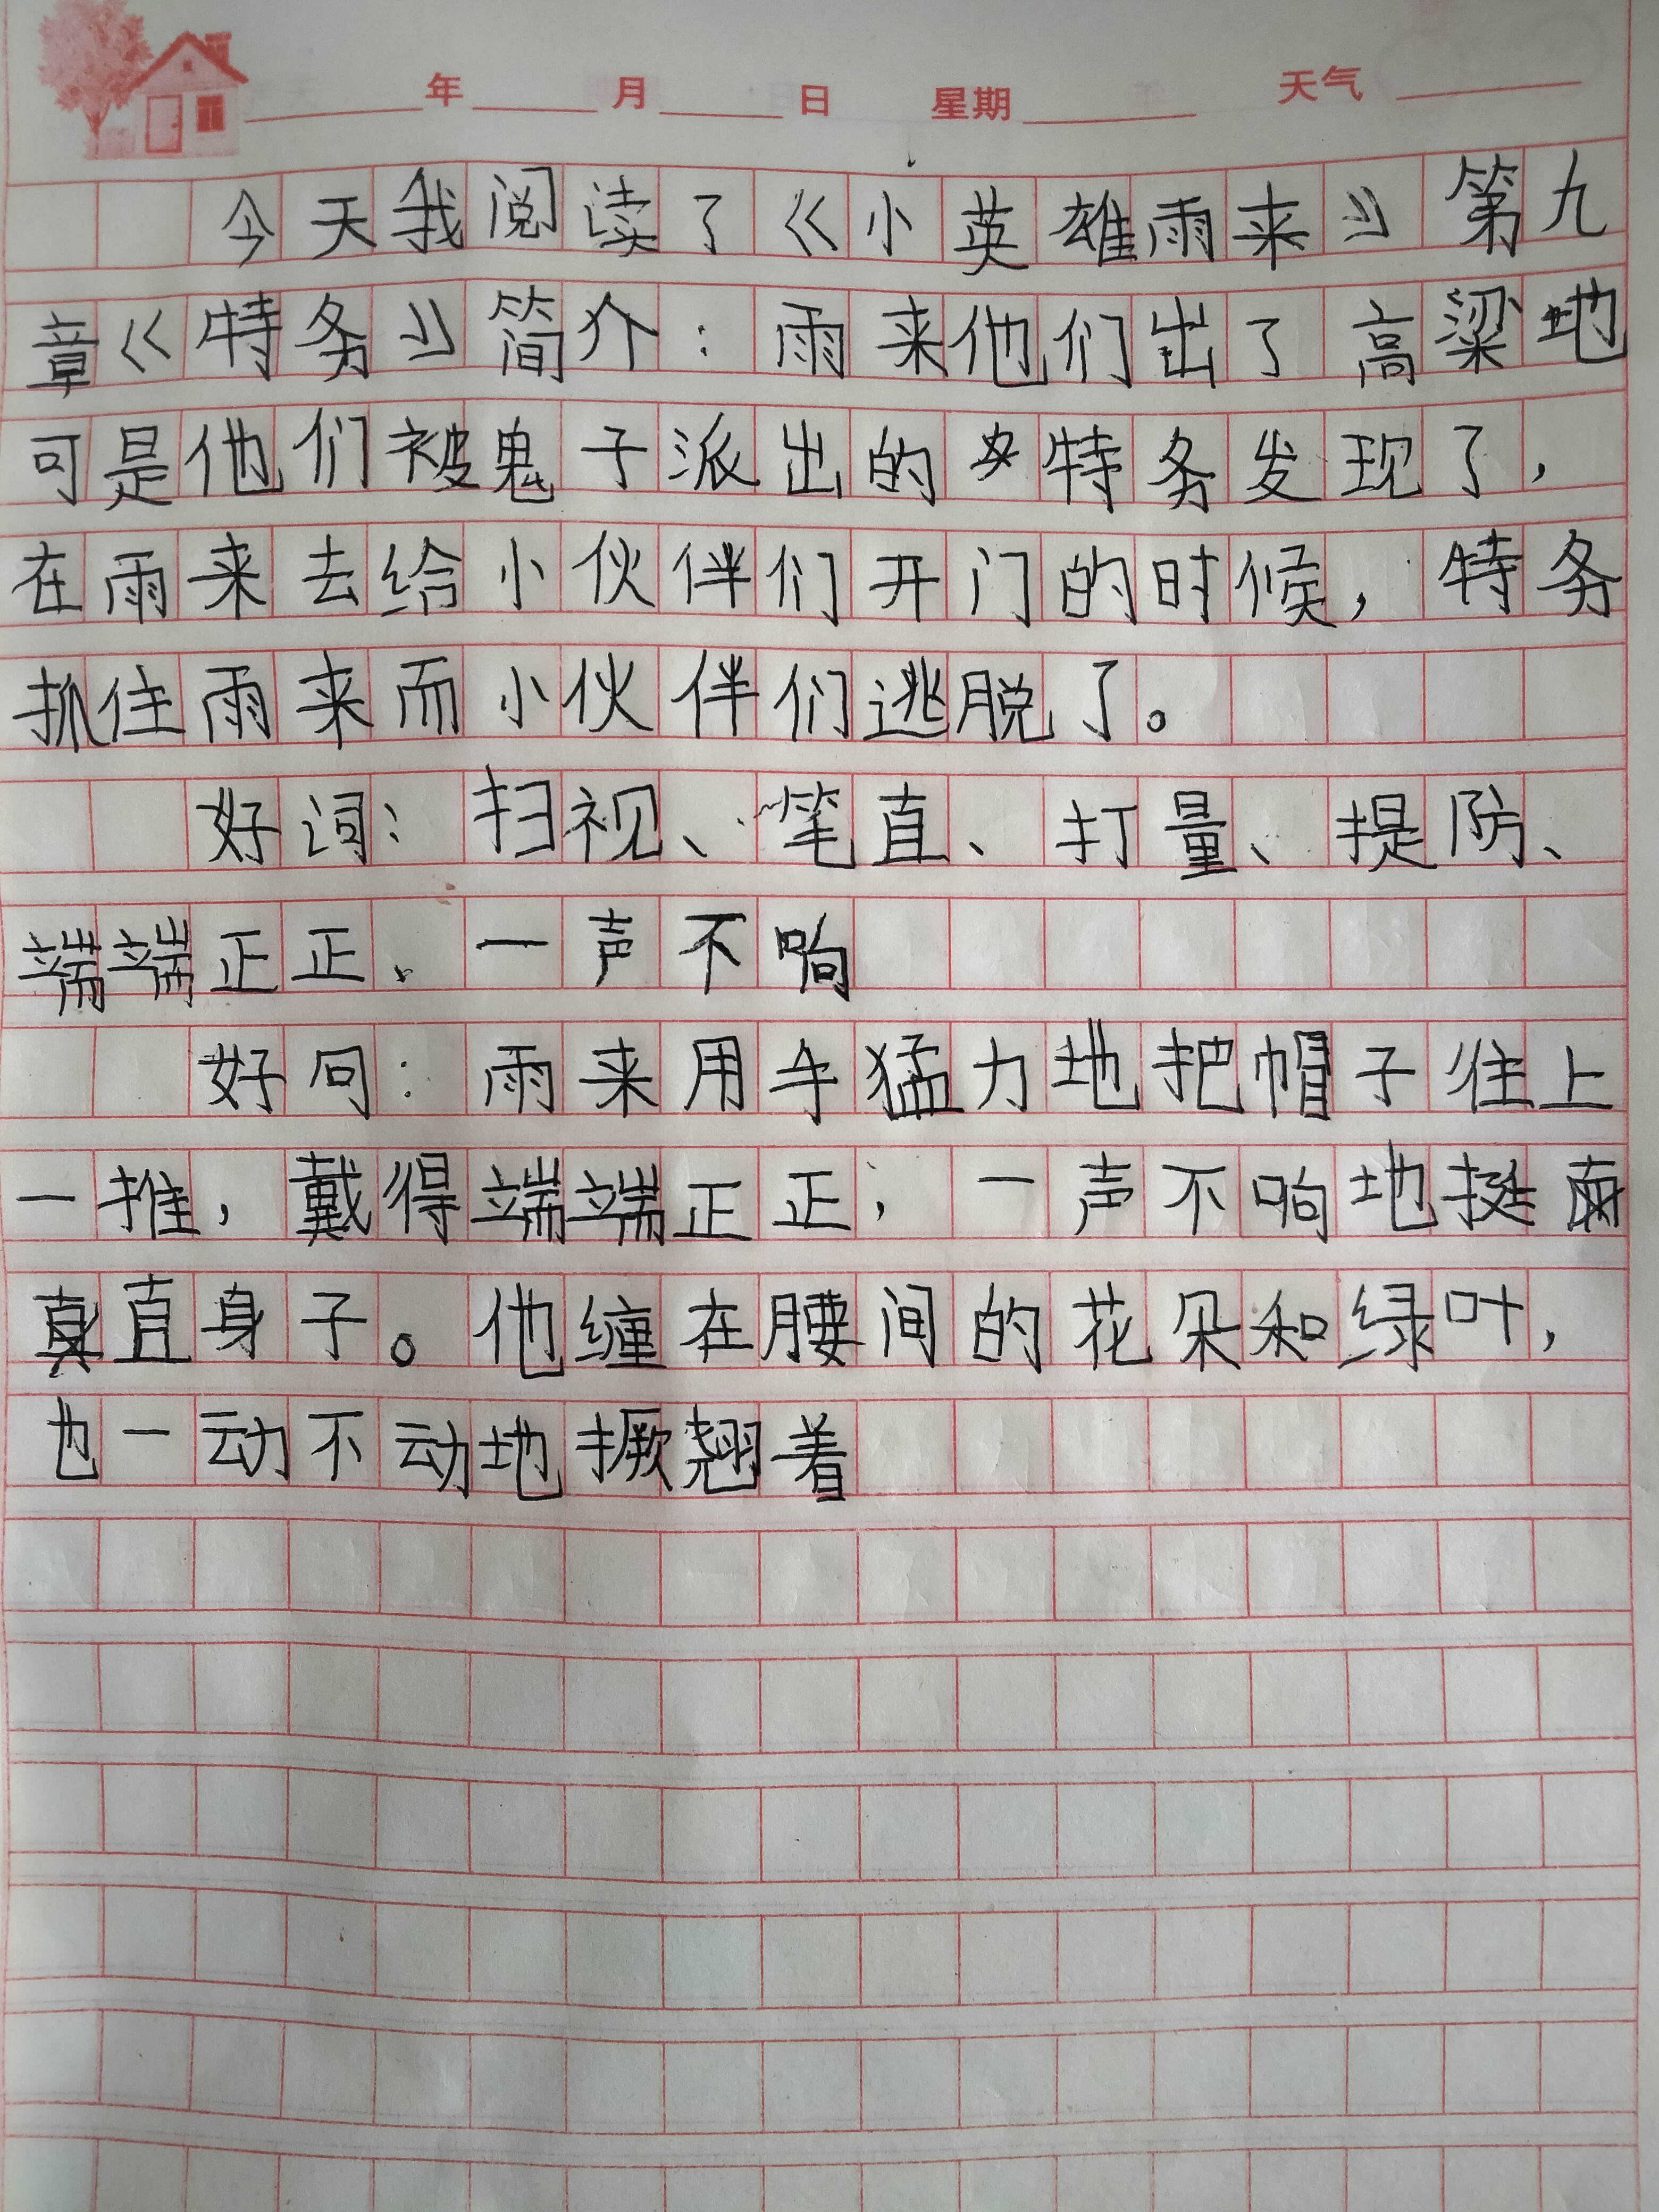 年 月 日 星期 天气
今天我阅读了《小英雄雨来》第九
章《特务》简介：雨来他们出了高粱地
可是他们被鬼子派出的特务发现了，
在雨来去给小伙伴们开门的时候，特务
抓住雨来而小伙伴们逃脱了。
好词：扫视、笔直、打量、提防、
端端正正、一声不响
好句：雨来用手猛力地把帽子往上
一推，戴得端端正正，一声不响地挺
直身子。他缠在腰间的花朵和绿叶，
也一动不动地撅翘着